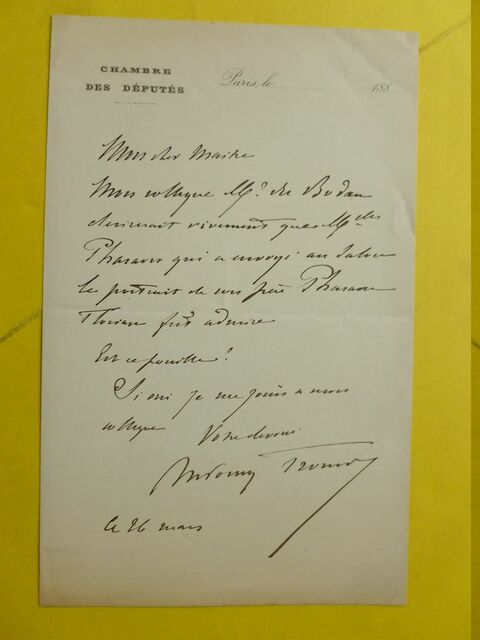 CHAMBRE
DES DÉPUTÉS
Paris, le 188
Mon cher Maitre
Mon collegue Mr. du Bodan
desirerait vivement que Melle
Pharaon qui a envoyé au Salon
le portrait de son père Pharaon
Florian fut admise
Est ce possible?
Si oui je me joins a mon
collegue
Votre devoué
Antony
Le 26 mars